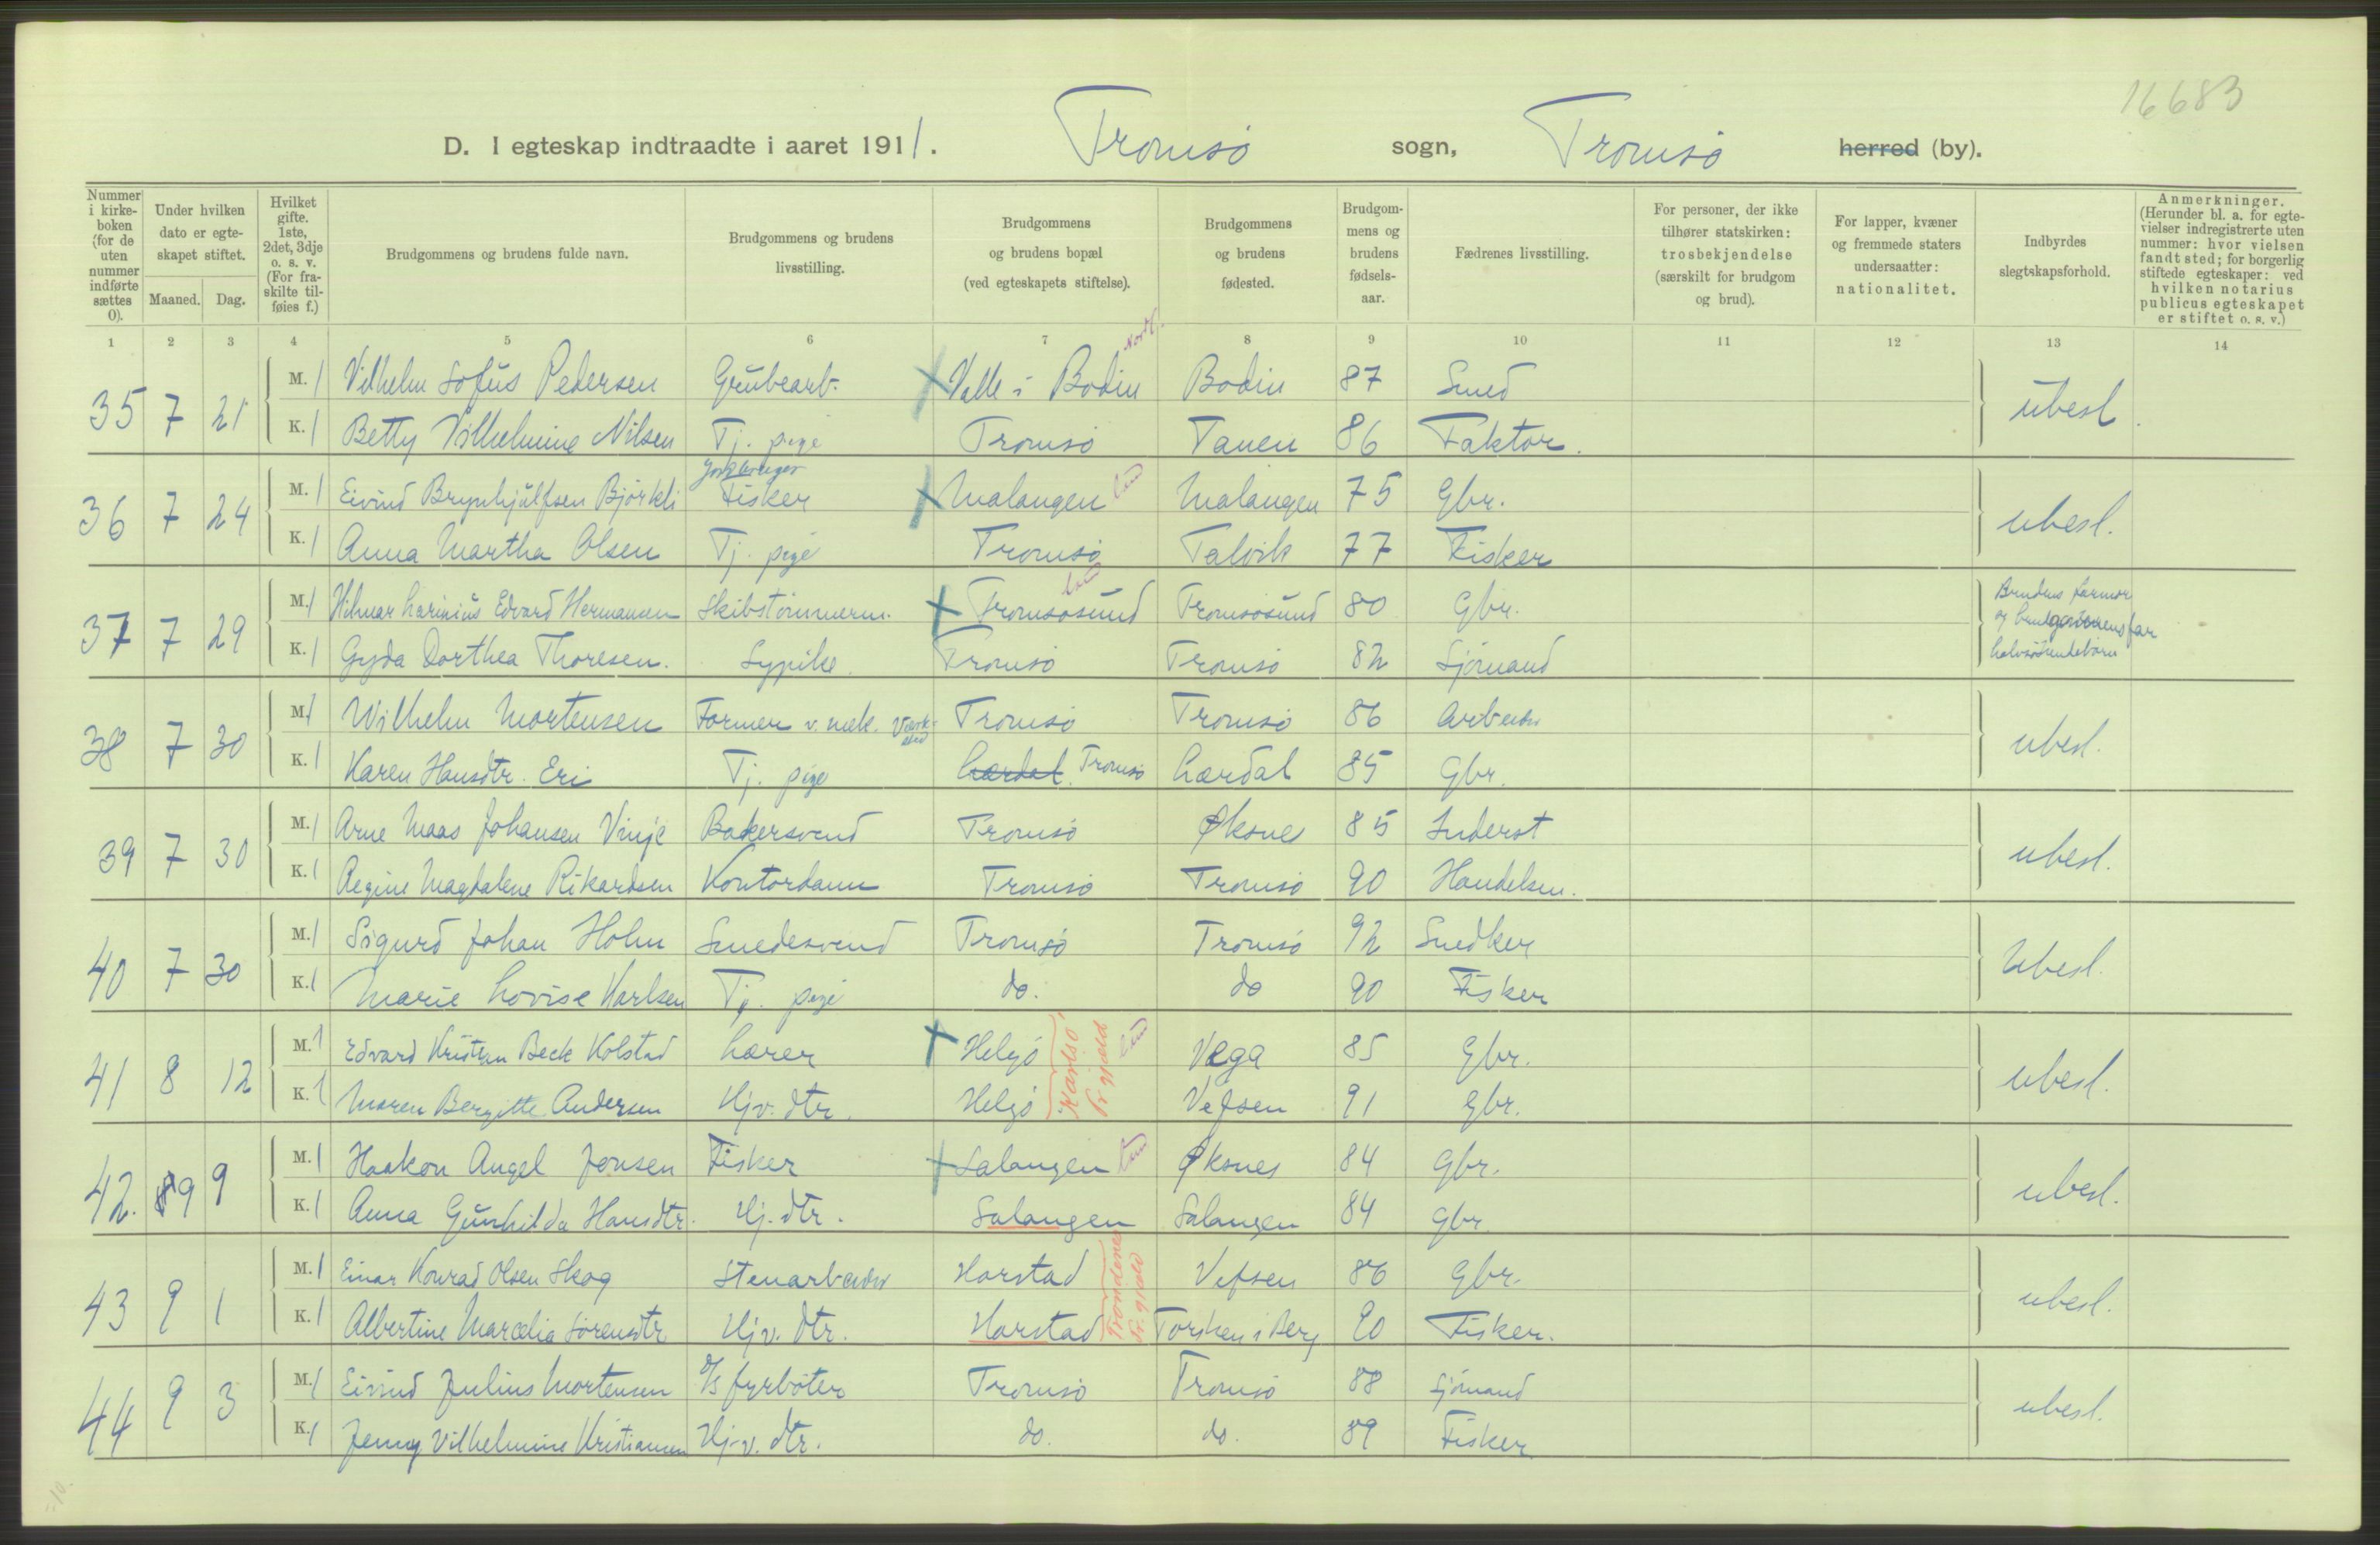 16683
D. I egteskap indtraadte i aaret 1911. Tromsö sogn, Tromsö herred (by).
Nummer i kirke-boken (for de uten nummer indførte sættes 0).
Under hvilken dato er egte-skapet stiftet.
Maaned. Dag.
Hvilket gifte. 1ste, 2det, 3dje o. s. v. (For fra-skilte til-føies f.)
Brudgommens og brudens fulde navn.
Brudgommens og brudens livsstilling.
Brudgommens og brudens bopæl (ved egteskapets stiftelse).
Brudgommens og brudens fødested.
Brudgom-mens og brudens fødsels-aar.
Fædrenes livsstilling.
For personer, der ikke tilhører statskirken: trosbekjendelse (særskilt for brudgom og brud).
For lapper, kvæner og fremmede staters undersaatter: nationalitet.
Indbyrdes slegtskapsforhold.
Anmerkninger. (Herunder bl. a. for egte-vielser indregistrerte uten nummer: hvor vielsen fandt sted; for borgerlig stiftede egteskaper: ved hvilken notarius publicus egteskapet er stiftet o. s. v.)
1 2 3 4 5 6 7 8 9 10 11 12 13 14
35 7 21 M. 1 Vilhelm Sofus Pedersen Grubearb. Valle i Bodin Bodin 87 Smed ubesl.
K. 1 Betty Vilhelmine Nilsen Tj. pige Tromsö Tanen 86 Faktor.
Jordbruger
36 7 24 M. 1 Eivind Brynhjulfsen Bjørkli Fisker Malangen Malangen 75 Gbr. ubesl.
K. 1 Anna Martha Olsen Tj. pige Tromsö Talvik 77 Fisker
37 7 29 M. 1 Hilmar Larinius Edvard Hermansen Skibstömmerm. Tromsösund Tromsösund 80 Gbr. Brudens farmor og brudgommens far halvsöskendebörn
K. 1 Gyda Dorthea Thoresen. Sypike. Tromsö Tromsö 82 Sjömand
38 7 30 M. 1 Wilhelm Mortensen Former v. mek. Værksted Tromsö Tromsö 86 Arbeider ubesl.
K. 1 Karen Hansdtr. Eri Tj. pige Lærdal Tromsö Lærdal 85 Gbr.
39 7 30 M. 1 Arne Maas Johansen Vinje Bakersvend Tromsö Øksnes 85 Inderst ubesl.
K. 1 Regine Magdalene Rikardsen Kontordame Tromsö Tromsö 90 Handelsm.
40 7 30 M. 1 Sigurd Johan Holm Smedesvend Tromsö Tromsö 92 Snedker Ubesl.
K. 1 Marie Lovise Karlsen Tj. pige do. do 90 Fisker
41 8 12 M. 1 Edvard Kristian Beck Kolstad Lærer Helgö Vega 85 Gbr. ubesl.
Karlsö Pr.gjæld
K. 1 Maren Bergitte Andersen Hjv. dtr. Helgö Vefsen 91 Gbr.
42. 9 9 M. 1 Haakon Angel Jensen Fisker Salangen Øksnes 84 Gbr. ubesl.
K. 1 Anna Gunhilda Hansdtr. Hj. dtr. Salangen Salangen 84 Gbr
43 9 1 M. 1 Einar Konrad Olsen Skog Stenarbeider Harstad Vefsen 86 Gbr. ubesl.
Trondenes Pr.gjæld
K. 1 Albertine Marcelia Sörensdtr Hjv. dtr. Harstad Torsken i Berg 90 Fisker.
44 9 3 M. 1 Eivind Julius Mortensen D/S fyrböter Tromsö Tromsö 88 Sjömand ubesl.
K. 1 Jenny Vilhelmine Kristiansen Hj.v. dtr. do. do. 89 Fisker